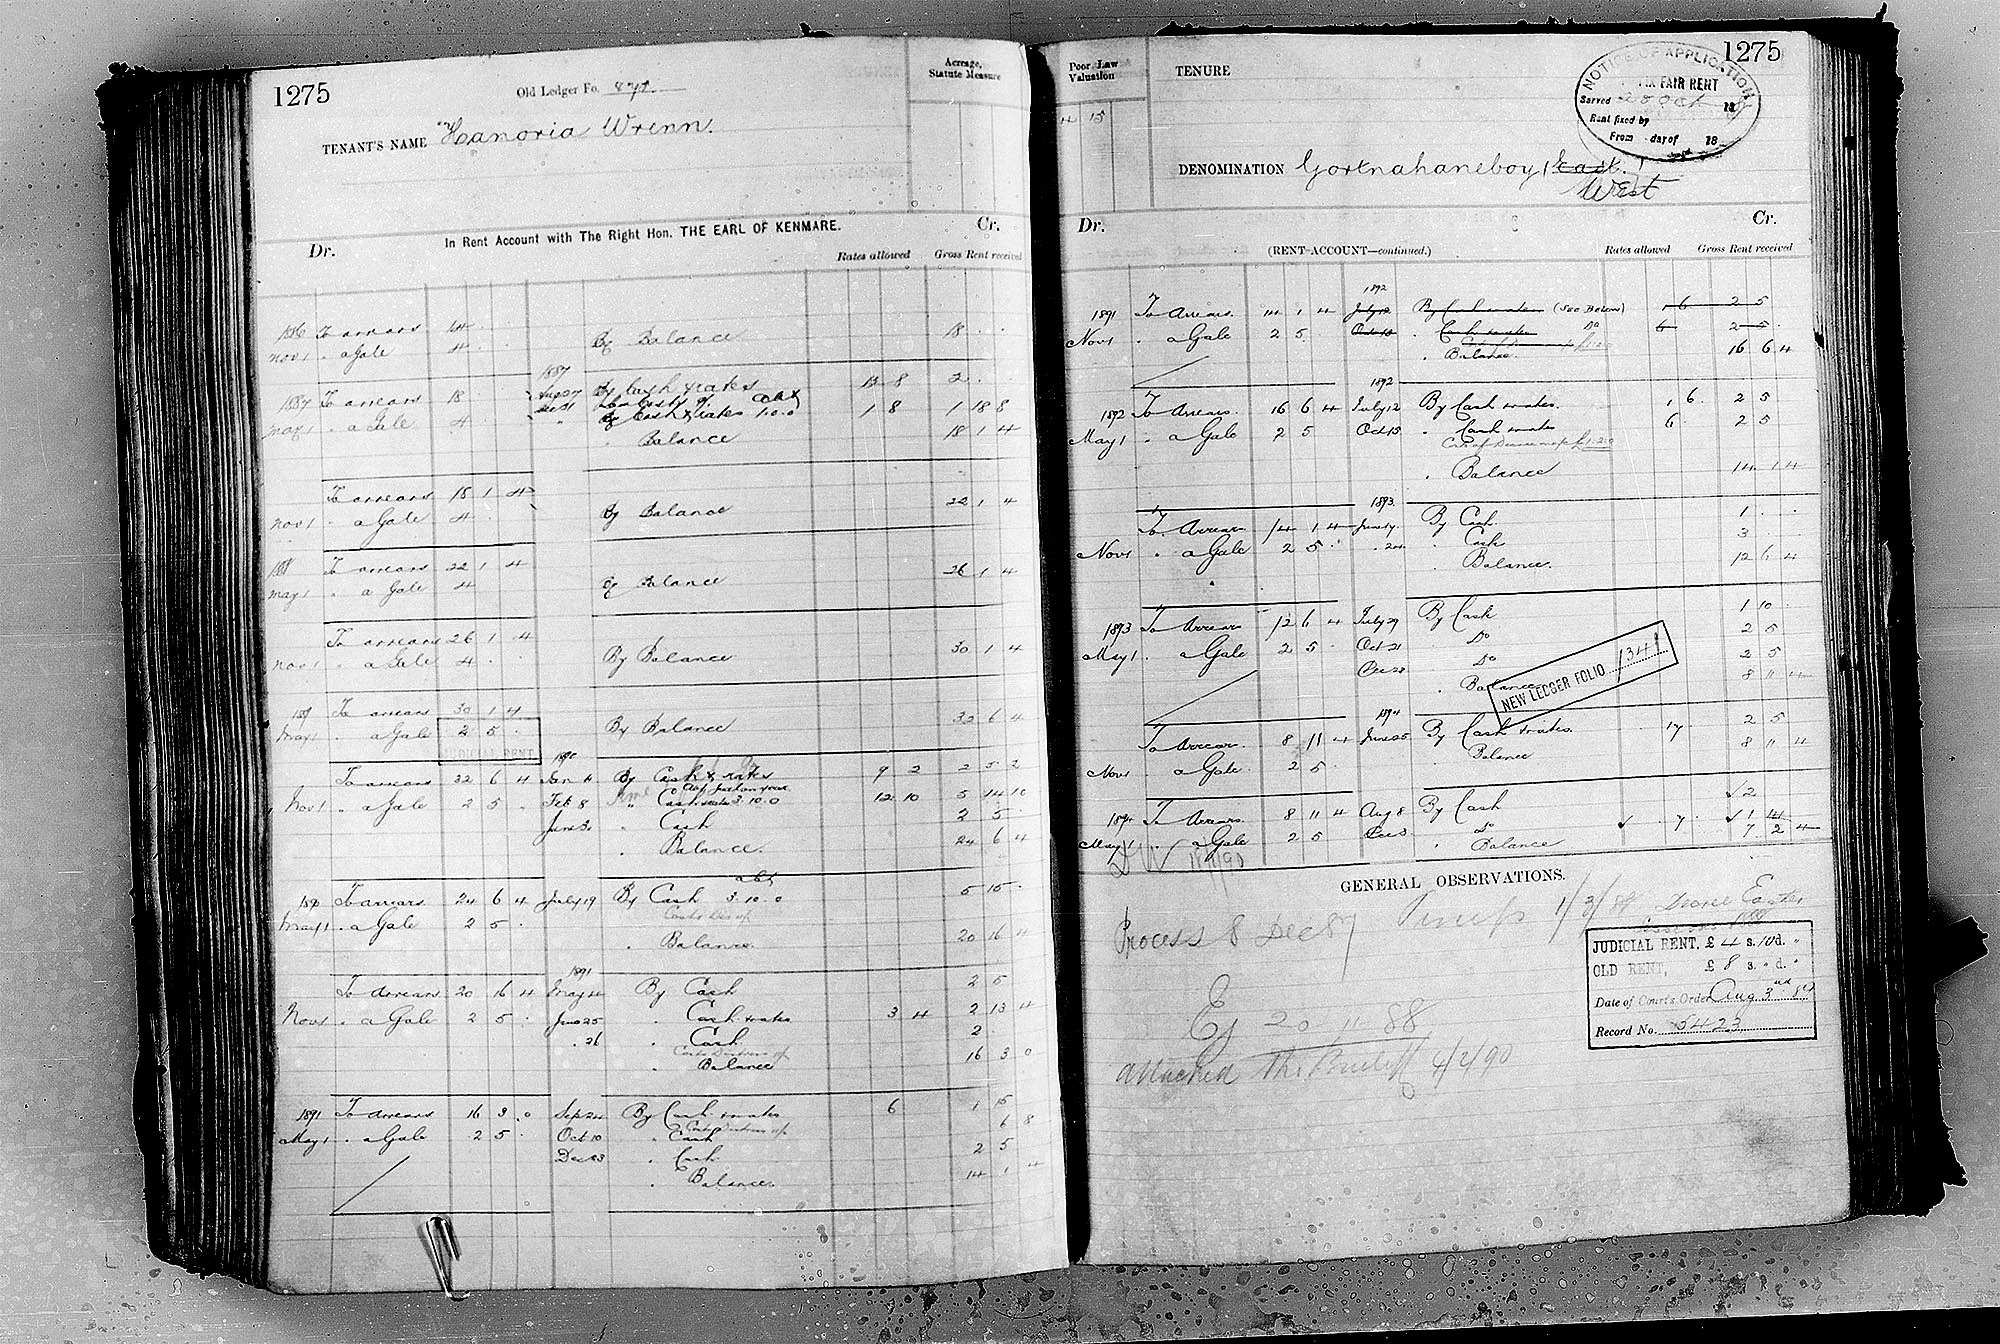 1275
Old Ledger Fo.
Acreage,
Statute Measure
TENANT'S NAME Hanoria Wrenn.
Dr. In Rent Account with The Right Hon. THE EARL OF KENMARE. Cr.
Rates allowed Gross Rent received
1886 To arrears 14 . .
Nov 1 . a Gale 4 . . By Balance 18 . .
1887
1887 To arrears 18 . Aug 27 By Cash & rates 13 8 2 . .
May 1 . a Gale 4 . Cash & rates 1.0.0 1 8 1 18 8
Balance 18 1 4
To arrears 18 1 4
Nov 1 . a Gale 4 . By Balance 22 1 4
1888 To arrears 22 1 4
May 1 " a Gale 4 By Balance 26 1 4
To arrears 26 1 4
Nov 1 " a Gale 4 . . By Balance 30 1 4
189 To arrears 30 1 4
May 1 . a Gale 2 5 . By Balance 32 6 4
JUDICIAL RENT
1890
To arrears 32 6 4 Jan 4 By Cash & rates 9 2 2 5 2
Nov 1 " a Gale 2 5 " Feb 8 " Cash & rates 3.10.0 12 10 5 14 10
June 3 " Cash 2 5
. Balance. 24 6 4
1890 To arrears 24 6 4 July 19 By Cash 3.10.0 5 15 .
May 1 . a Gale 2 5 .
. Balance. 20 16 4
1891
To Arrears 20 16 4 May 4 By Cash 2 5
Nov 1 . a Gale 2 5 . June 25 . Cash & rates 3 4 2 13 4
. 26 . Cash 2 .
. Balance 16 3 0
1891 To Arrears 16 3 . 0 Sep 24 By Cash & rates 6 1 15
May 1 . a Gale 2 5 . Oct 10 . Cash 6 8
Dec 23 . Cash 2 5
. Balance. 14 1 4
1275
Poor Law
Valuation
4 15
TENURE
NOTICE OF APPLICATION
FIX FAIR RENT
Served 20 Oct 18
Rent fixed by
From day of 18
DENOMINATION Gortnahaneboy East.
West
Dr. Cr.
(RENT-ACCOUNT—continued.) Rates allowed Gross Rent received
1892
1891 To Arrears 14 1 4 July 12 By Cash & rates (See Below) 1 6 2 5
Nov 1 . a Gale 2 5 Oct 15 . Cash & rates Do 6 2 5
. Balance. 16 6 4
1892
1892 To Arrears 16 6 4 July 12 By Cash & rates. 1 6 2 5
May 1 . a Gale 2 5 Oct 15 . Cash & rates 6 2 5
. Balance 14 1 4
1893
To Arrears 14 1 4 June 17 By Cash 1 . .
Nov 1 . a Gale 2 5 . . Cash 3 . .
. Balance. 12 6 4
1893 To Arrears 12 6 4 July 29 By Cash 1 10 .
May 1 . a Gale 2 5 . Oct 21 Do 2 5
Dec 28 Do 2 5
. Balance 8 11 4
NEW LEDGER FOLIO 1341
1894
To Arrears. 8 11 4 June 25 By Cash & rates. 17 2 5
Nov 1 . a Gale 2 5 Balance 8 11 4
1894 To Arrears. 8 11 4 Aug 8 By Cash 2
May 1 . a Gale 2 5 Dec 3 Do 7 1 14
. Balance 7 2 4
GENERAL OBSERVATIONS.
Process 8 Dec 87
1/3/88 Decree Easter
JUDICIAL RENT, £ 4 s. 10 d. "
OLD RENT, £ 8 s. " d. "
Date of Court's Order Aug 3rd 89
Record No. 5423
Ej 20 11 88
Attached the Bailiff 4/2/90